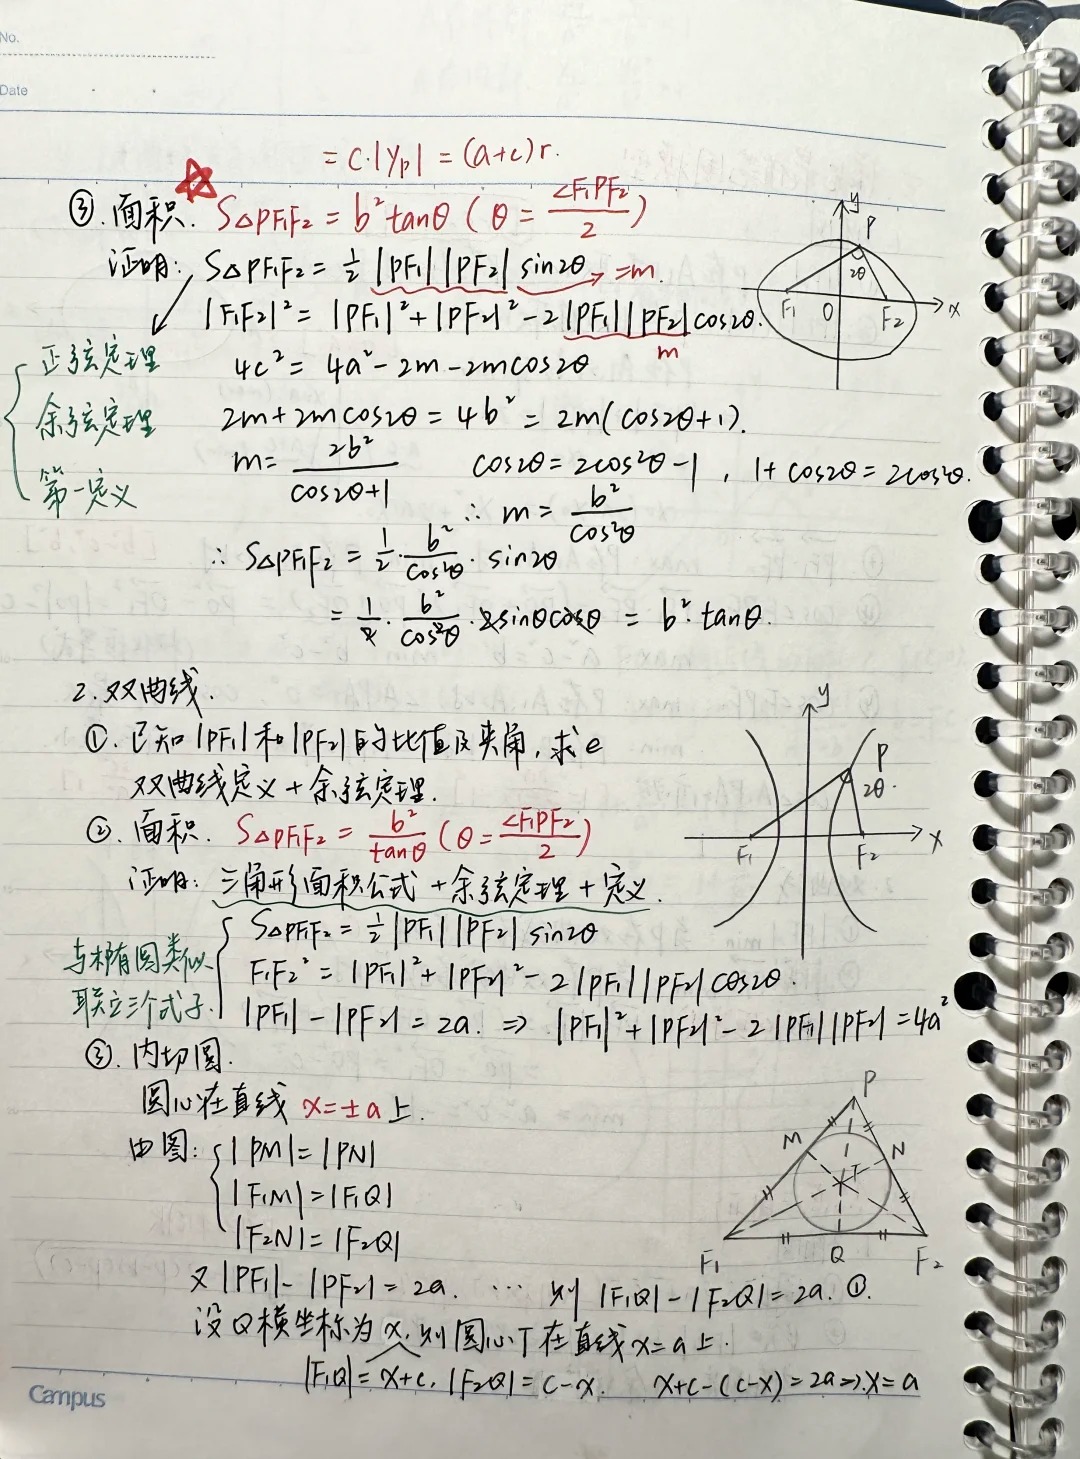 No.
Date
= c·|yp| = (a+c)r.
③. 面积. S△PF₁F₂ = b²tanθ ( θ = ∠F₁PF₂/2 )
证明: S△PF₁F₂ = 1/2 |PF₁| |PF₂| sin2θ → =m.
|F₁F₂|² = |PF₁|² + |PF₂|² - 2|PF₁||PF₂|cos2θ.
m
正弦定理
4c² = 4a² - 2m - 2mcos2θ
余弦定理
2m + 2mcos2θ = 4b² = 2m(cos2θ+1).
第一定义
m = 2b²/(cos2θ+1) cos2θ = 2cos²θ-1 , 1+cos2θ = 2cos²θ.
∴ m = b²/cos²θ
∴ S△PF₁F₂ = 1/2 · b²/cos²θ · sin2θ
= 1/2 · b²/cos²θ · 2sinθcosθ = b²·tanθ.
y
P
2θ
F₁ O F₂ x
2. 双曲线.
①. 已知|PF₁|和|PF₂|的比值及夹角, 求e
双曲线定义 + 余弦定理.
②. 面积. S△PF₁F₂ = b²/tanθ ( θ = ∠F₁PF₂/2 )
证明: 三角形面积公式 + 余弦定理 + 定义.
y
P
2θ.
F₁ F₂ x
与椭圆类似
联立三个式子.
S△PF₁F₂ = 1/2 |PF₁| |PF₂| sin2θ
F₁F₂² = |PF₁|² + |PF₂|² - 2|PF₁||PF₂|cos2θ.
|PF₁| - |PF₂| = 2a. ⇒ |PF₁|² + |PF₂|² - 2|PF₁||PF₂| = 4a²
③. 内切圆.
圆心在直线 x=±a 上.
由图: |PM| = |PN|
|F₁M| = |F₁Q|
|F₂N| = |F₂Q|
P
M N
T
F₁ Q F₂
又 |PF₁| - |PF₂| = 2a. ⋯ 则 |F₁Q| - |F₂Q| = 2a. ①.
设Q横坐标为x, 则圆心T在直线x=a上.
|F₁Q| = x+c, |F₂Q| = c-x. x+c-(c-x) = 2a ⇒ x=a
Campus